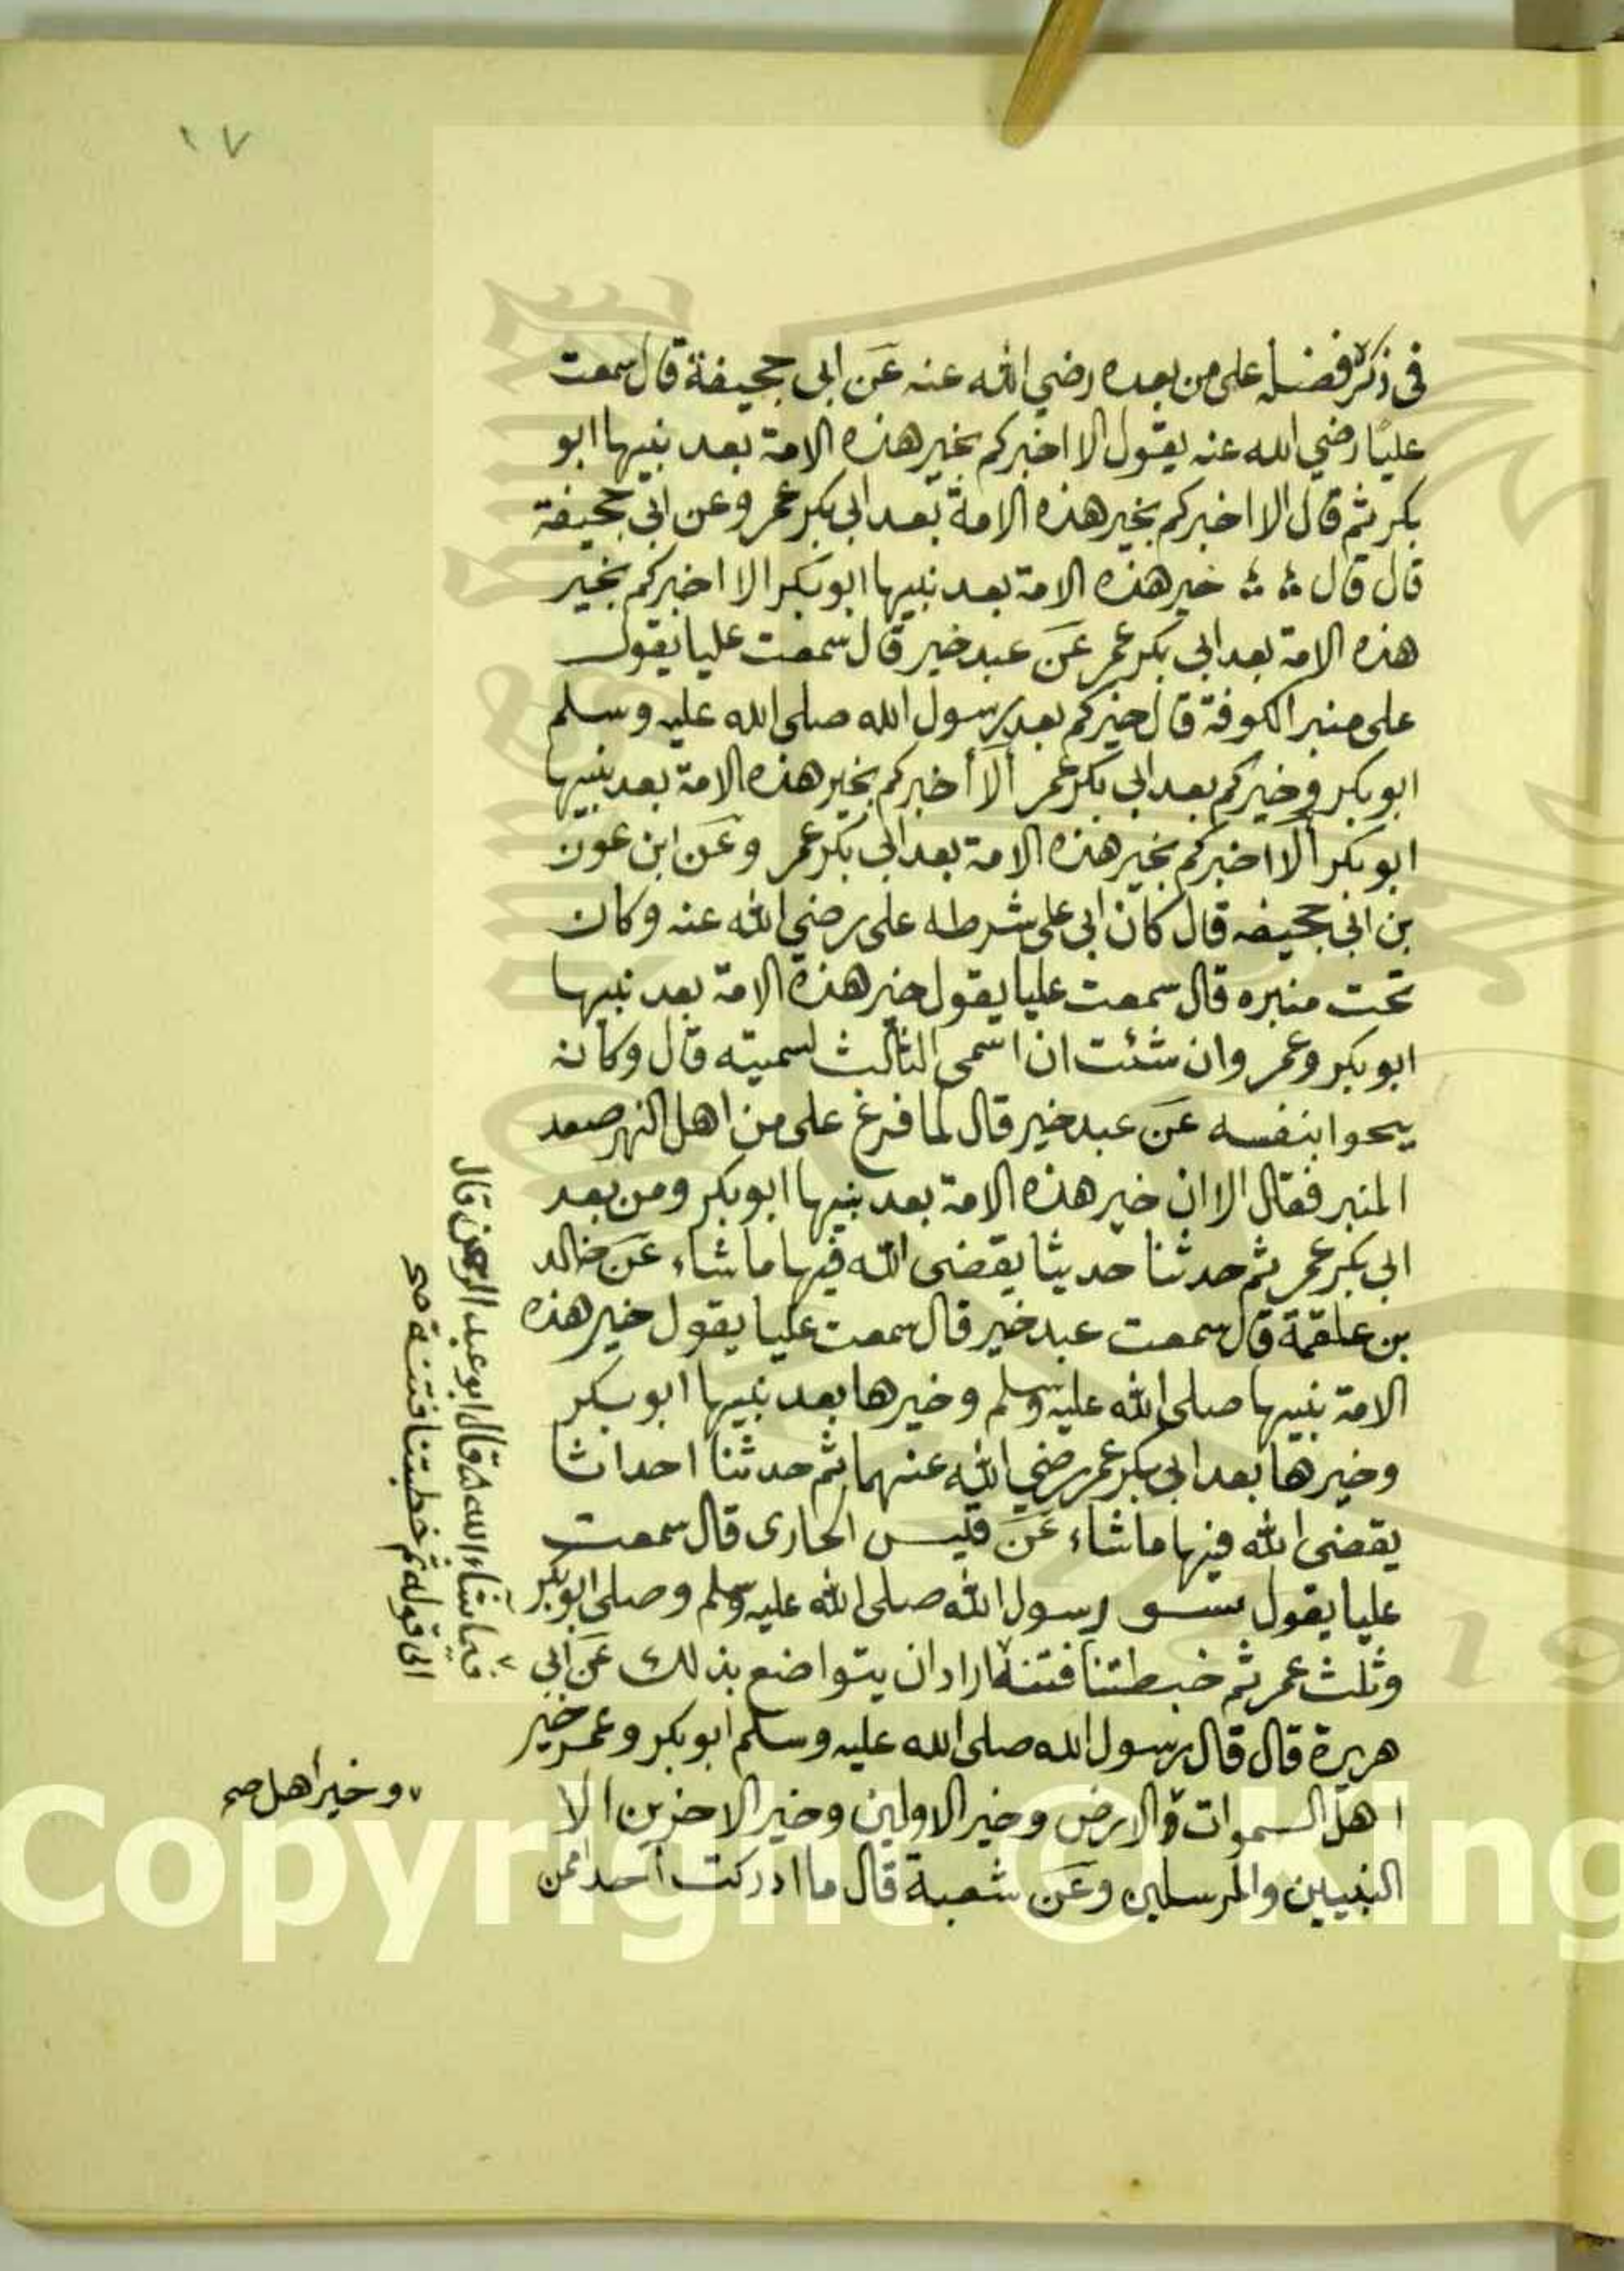 ١٧
في ذكر فضله على من بعده رضي الله عنه عن ابي جحيفة قال سمعت
عليا رضي الله عنه يقول الا اخبركم بخير هذه الامة بعد نبيها ابو
بكر ثم قال الا اخبركم بخير هذه الامة بعد ابي بكر عمر وعن ابي جحيفة
قال قال خير هذه الامة بعد نبيها ابو بكر الا اخبركم بخير
هذه الامة بعد ابي بكر عمر عن عبد خير قال سمعت عليا يقول
على منبر الكوفة قال خيركم بعد رسول الله صلى الله عليه وسلم
ابو بكر وخيركم بعد ابي بكر عمر ألا أخبركم بخير هذه الامة بعد نبيها
ابو بكر ألا اخبركم بخير هذه الامة بعد ابي بكر عمر وعن ابن عون
بن ابي جحيفه قال كان ابي على شرطه على رضي الله عنه وكان
تحت منبره قال سمعت عليا يقول خير هذه الامة بعد نبيها
ابو بكر وعمر وان شئت ان اسمى الثالث لسميته قال وكان
بنفسه عن عبد خير قال لما فرغ على من اهل النهر صعد
المنبر فقال الا ان خير هذه الامة بعد نبيها ابو بكر ومن بعد
ابي بكر عمر ثم حدثنا حديثا يقضى الله فيها ما شاء عن خالد
بن علقمة قال سمعت عبد خير قال سمعت عليا يقول خير هذه
الامة نبيها صلى الله عليه وسلم وخيرها بعد نبيها ابو بكر
وخيرها بعد ابي بكر عمر رضي الله عنهما ثم حدثنا احداثا
يقضى الله فيها ما شاء عن قيس الخارى قال سمعت
عليا يقول رسول الله صلى الله عليه وسلم وصلى ابو بكر
وثلث عمر ثم خبطتنا فتنة اراد ان يتواضع بذلك عن ابي
هريرة قال قال رسول الله صلى الله عليه وسلم ابو بكر وعمر خير
اهل السموات والارض وخير الاولين وخير الاخرين الا
النبيين والمرسلين وعن شعبة قال ما ادركت احدا ممن
ما شاء الله قال ابو عبد الرحمن قال
الى قوله ثم خطبتنا فتنة صح
وخير أهل صح
Copyright © King